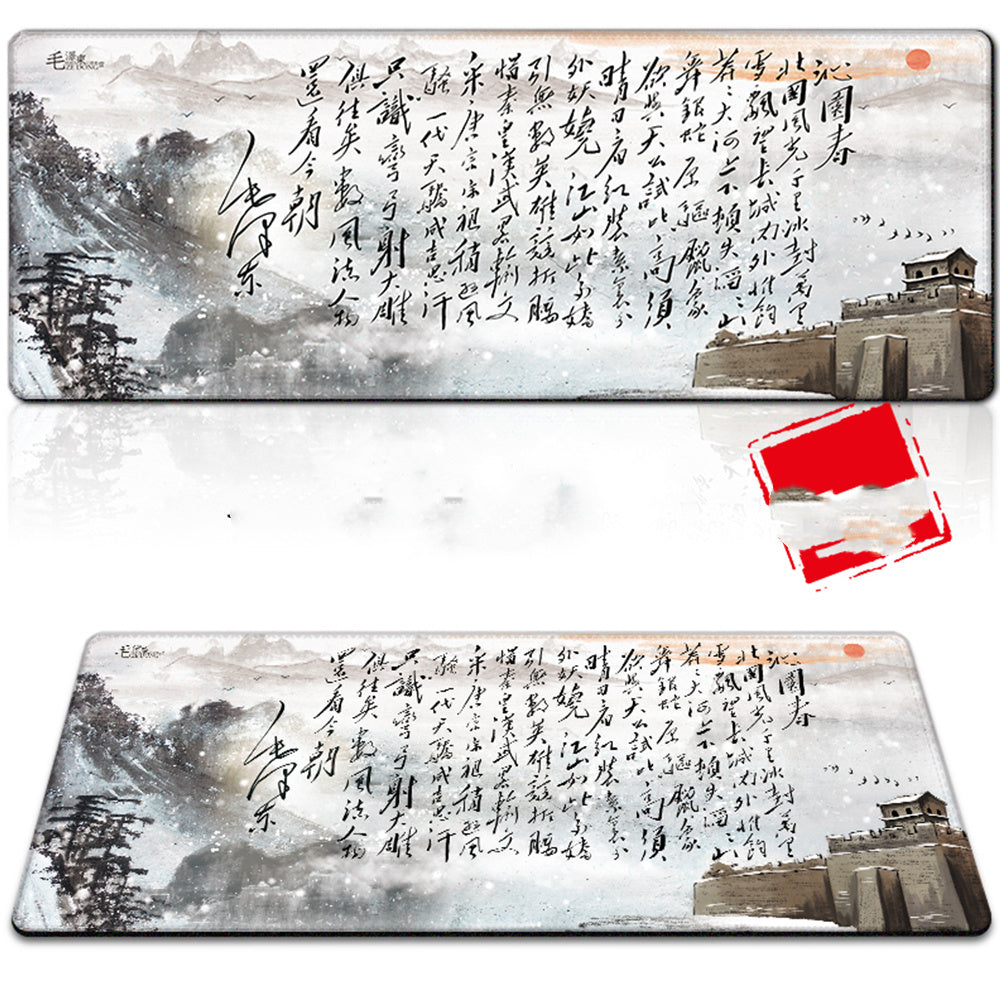 毛澤東
ZEDONG
沁園春
北國風光千里冰封萬里
雪飄望長城內外惟餘
莽莽大河上下頓失滔滔山
舞銀蛇原驅臘象
欲與天公試比高須
晴日看紅裝素裹分
外妖嬈江山如此多嬌
引無數英雄競折腰
惜秦皇漢武略輸文
采唐宗宋祖稍遜風
騷一代天驕成吉思汗
只識彎弓射大雕
俱往矣數風流人物
還看今朝
毛泽东
沁園春
北國風光千里冰封萬里
雪飄望長城內外惟餘
莽莽大河上下頓失滔滔山
舞銀蛇原驅臘象
欲與天公試比高須
晴日看紅裝素裹分
外妖嬈江山如此多嬌
引無數英雄競折腰
惜秦皇漢武略輸文
采唐宗宋祖稍遜風
騷一代天驕成吉思汗
只識彎弓射大雕
俱往矣數風流人物
還看今朝
毛泽东